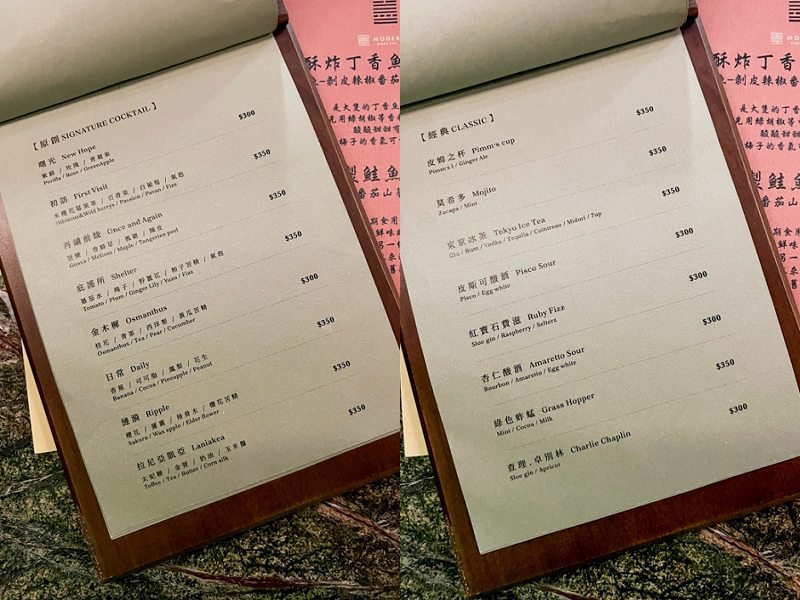 【原創 SIGNATURE COCKTAIL】
曙光 New Hope $300
紫蘇 / 玫瑰 / 青蘋果
Perilla / Rose / GreenApple
初訪 First Visit $350
Hibiscus&Wild berrys / Passion / Pavan / Fizz
再續前緣 Once and Again $350
Guava / Melissa / Maple / Tangerine peel
庇護所 Shelter $350
蕃茄水 / 梅子 / 野薑花 / 柚子苦精 / 氣泡
Tomato / Plum / Ginger Lily / Yuzu / Fizz
金木樨 Osmanthus $300
桂花 / 青茶 / 西洋梨 / 黃瓜苦精
Osmanthus / Tea / Pear / Cucumber
日常 Daily $350
香蕉 / 可可脂 / 鳳梨 / 花生
Banana / Cocoa / Pineapple / Peanut
漣漪 Ripple $350
櫻花 / 蓮霧 / 接骨木 / 櫻花苦精
Sakura / Wax apple / Elder flower
拉尼亞凱亞 Laniakea $350
太妃糖 / 金萱 / 奶油 / 玉米鬚
Toffee / Tea / Butter / Corn silk
酥炸丁香魚
剝皮辣椒番茄
是大隻的丁香魚
先用綠胡椒等香
酸酸甜甜
梅子的香氣可
製鮭魚
番茄山
【經典 CLASSIC】
皮姆之杯 Pimm's cup $350
Pimm's 1 / Ginger Ale
莫希多 Mojito $350
Zacapa / Mint
東京冰茶 Tokyo Ice Tea $350
Gin / Rum / Vodka / Tequila / Cointreau / Midori / 7up
皮斯可酸酒 Pisco Sour $300
Pisco / Egg white
紅寶石費滋 Ruby Fizz $300
Sloe gin / Raspberry / Seltera
杏仁酸酒 Amaretto Sour $300
Bourbon / Amaretto / Egg white
綠色蚱蜢 Grass Hopper $350
Mint / Cocoa / Milk
查理．卓別林 Charlie Chaplin $300
Sloe gin / Apricot
酥炸丁香
剝皮辣椒番
是大隻的丁香
先用綠胡椒等
酸酸甜甜
梅子的香氣
製鮭
番茄山